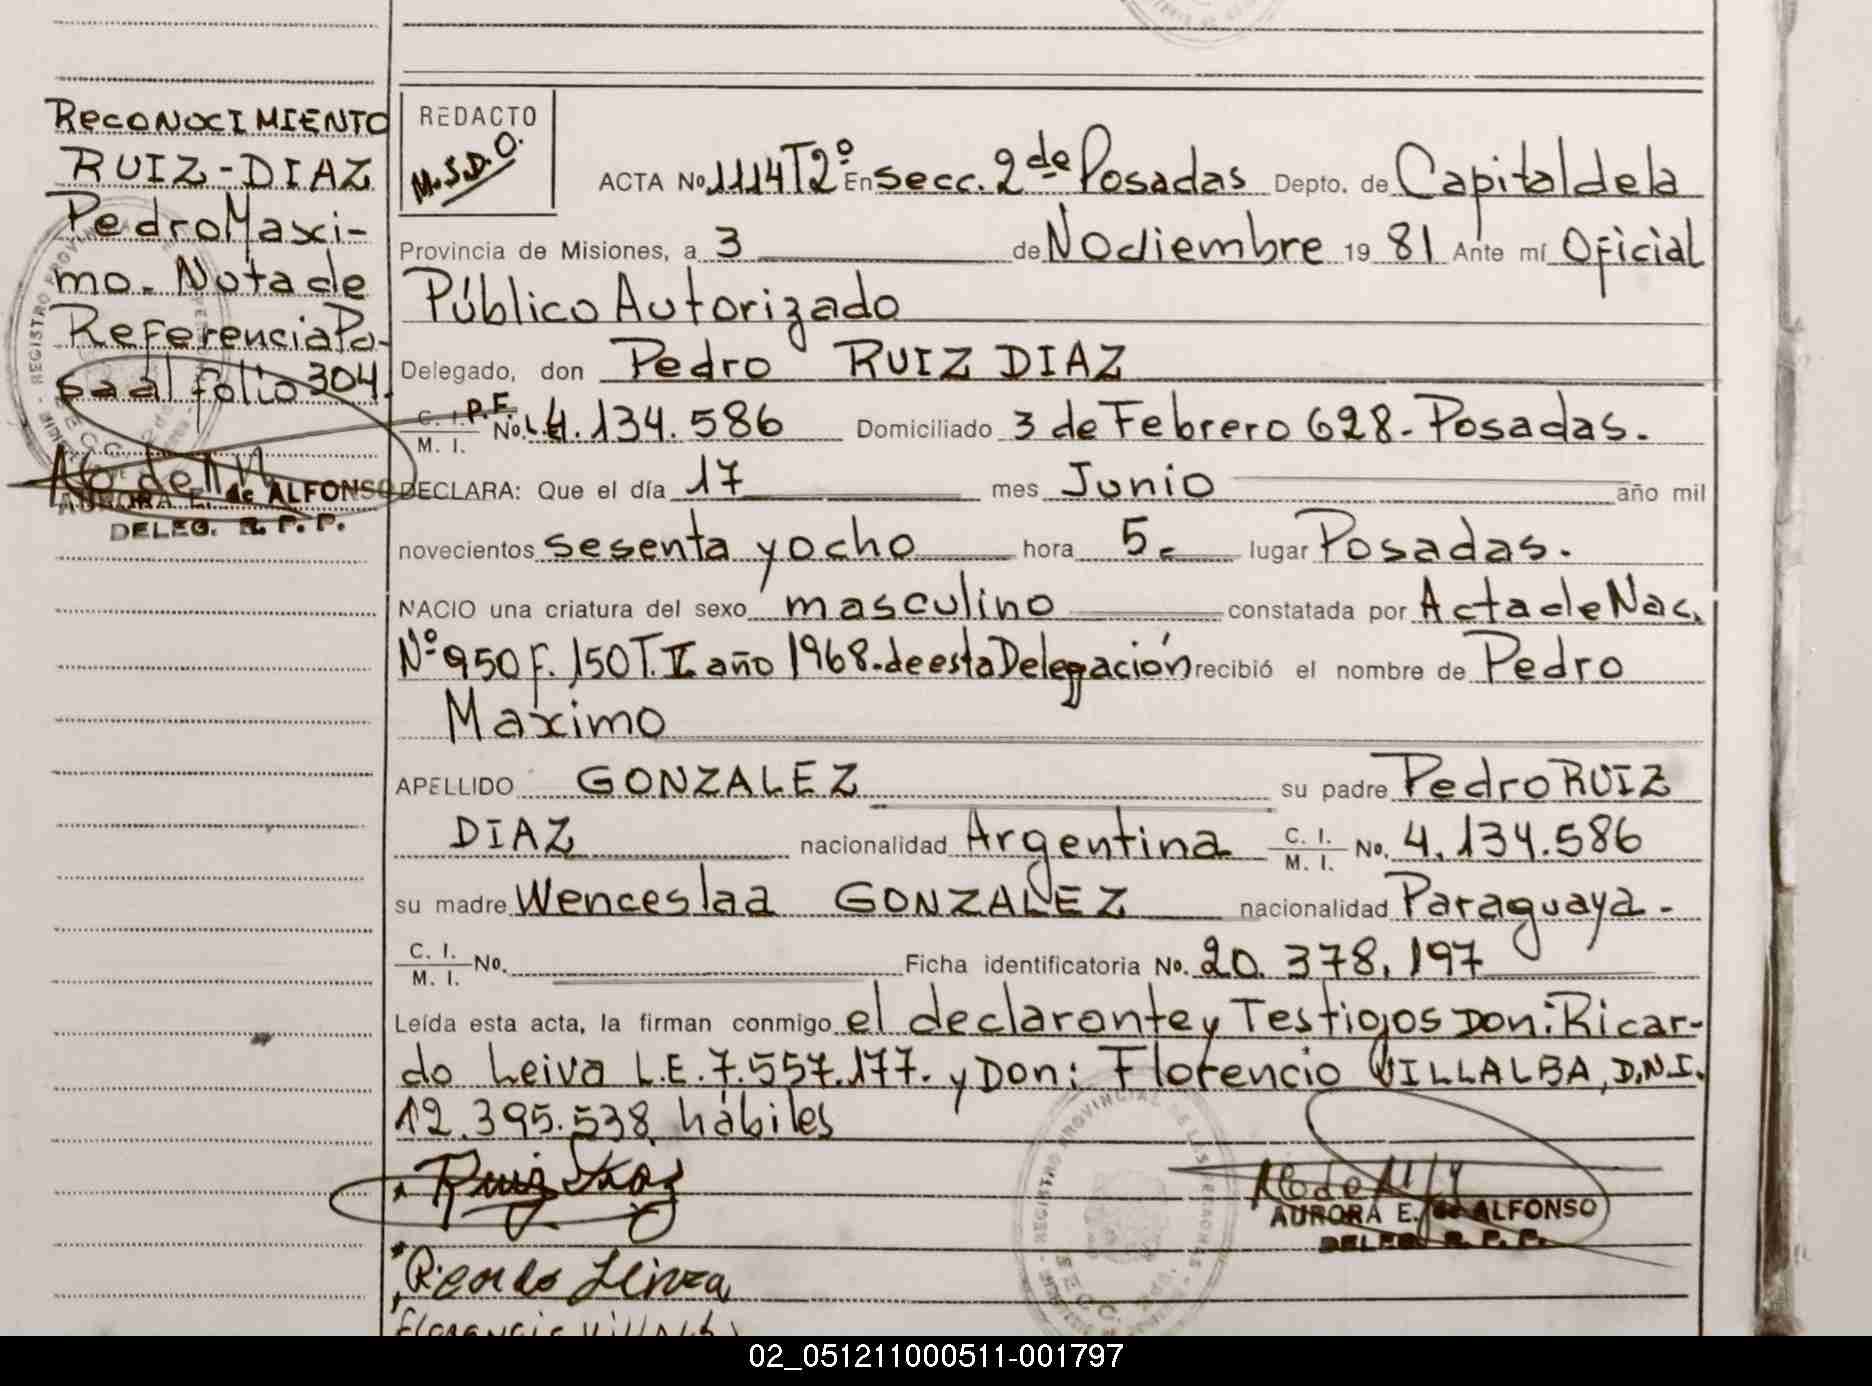 RECONOCIMIENTO
RUIZ-DIAZ
Pedro Maxi-
mo. Nota de
Referencia Pa-
sa al folio 304.
AURORA E. de ALFONSO
DELEG. R. P. P.
REDACTO
M.S.D.O.
ACTA No 1114 T2º En Secc. 2da Posadas Depto. de Capital de la
Provincia de Misiones, a 3 de Noviembre 19 81 Ante mí Oficial
Público Autorizado
Delegado, don Pedro RUIZ DIAZ
C. I. P.F.
M. I. No. 4.134.586 Domiciliado 3 de Febrero 628-Posadas.
DECLARA: Que el día 17 mes Junio año mil
novecientos sesenta y ocho hora 5 lugar Posadas.
NACIO una criatura del sexo masculino constatada por Acta de Nac.
Nº 950 F. 150 T. II año 1968. de esta Delegación recibió el nombre de Pedro
Maximo
APELLIDO GONZALEZ su padre Pedro RUIZ
DIAZ nacionalidad Argentina C. I. M. I. No. 4.134.586
su madre Wenceslaa GONZALEZ nacionalidad Paraguaya.
C. I. M. I. No. Ficha identificatoria No. 20.378.197
Leída esta acta, la firman conmigo el declarante y Testigos Don: Ricar-
do Leiva L.E. 7.557.177. y Don: Florencio VILLALBA, D.N.I.
12.395.538 hábiles
Ruiz Diaz
AURORA E. de ALFONSO
DELEG. R. P. P.
Ricardo Leiva
02_051211000511-001797